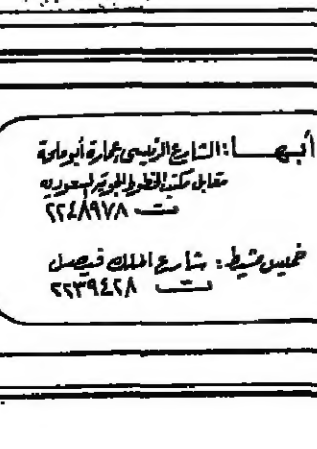 أبها: الشارع الرئيسى عمارة أبو ملحة
مقابل مكتب الخطوط الجوية السعوديه
ت ٢٢٤٨٩٧٨
خميس مشيط: شارع الملك فيصل
ت ٢٢٣٩٤٢٨